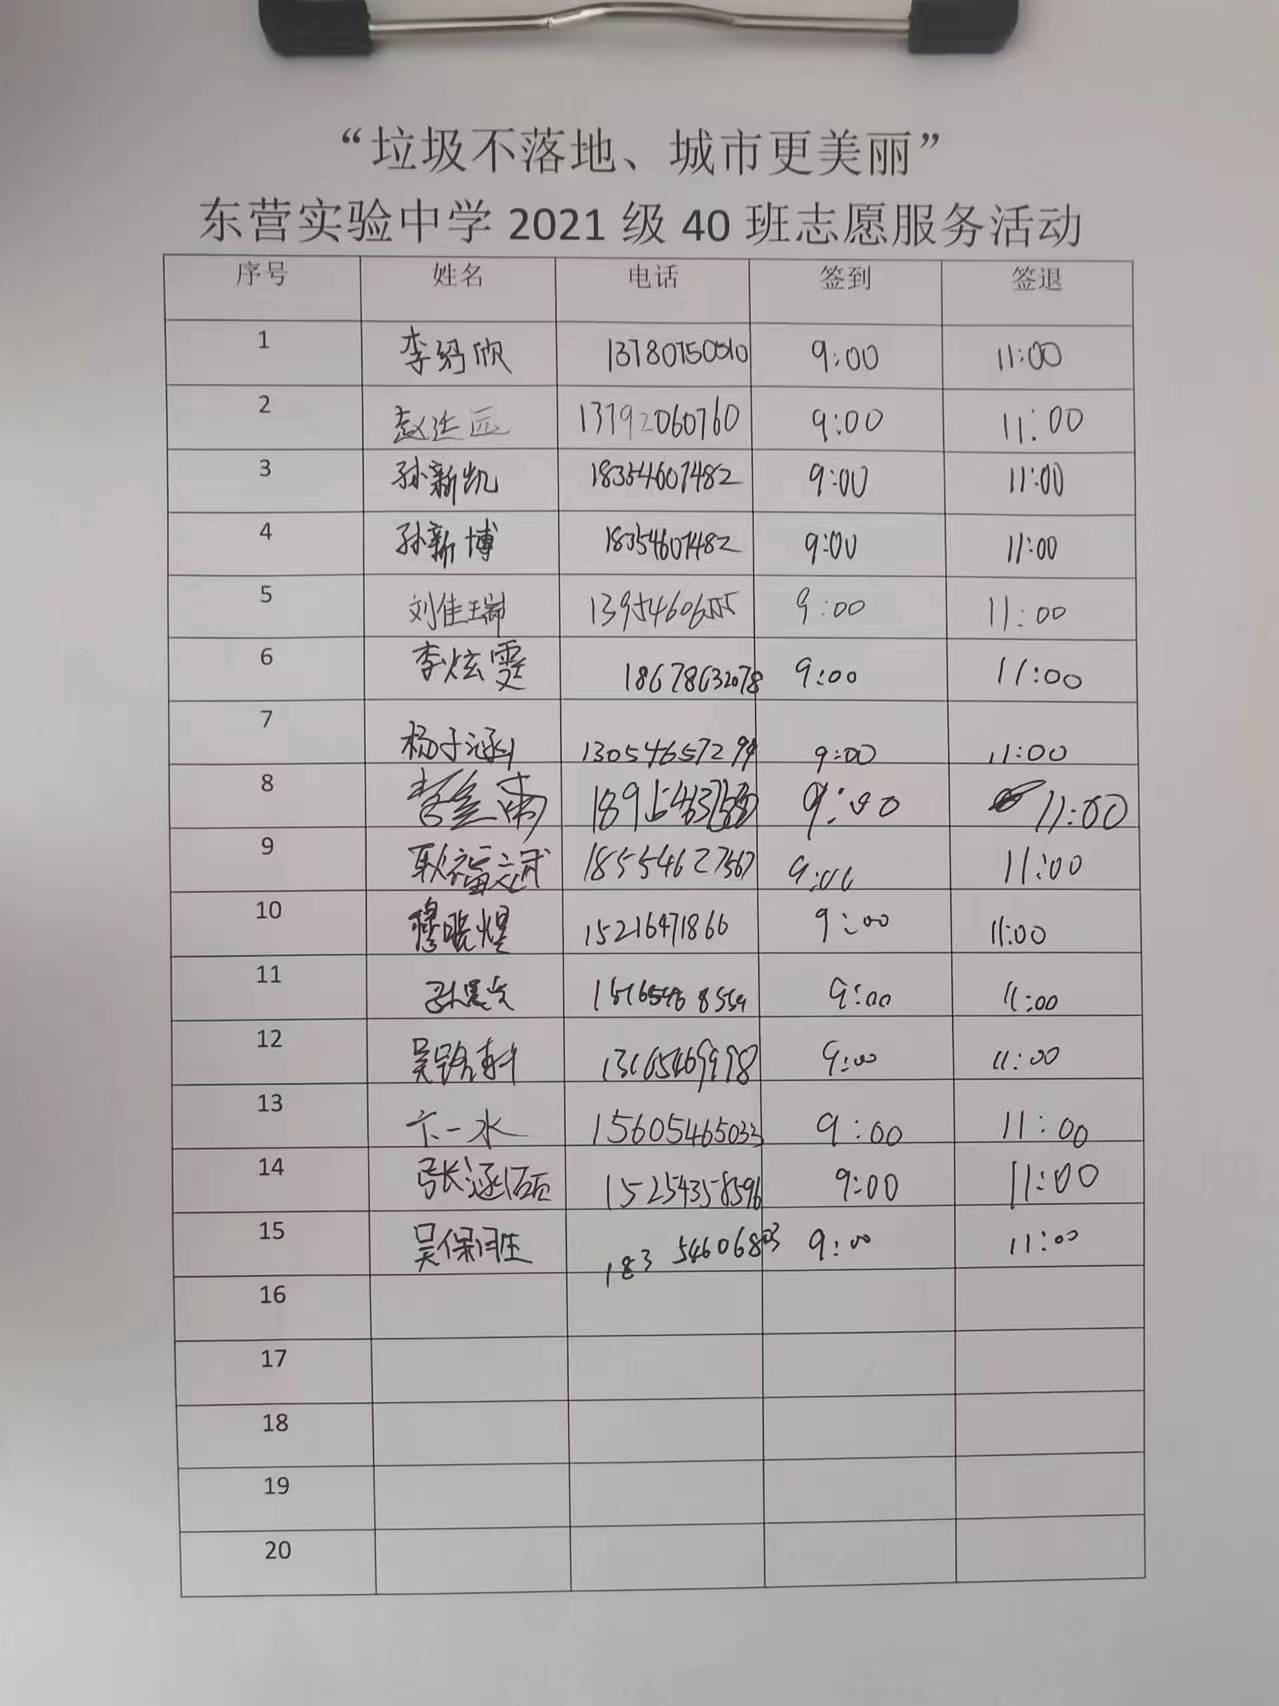 “垃圾不落地、城市更美丽”
东营实验中学 2021 级 40 班志愿服务活动
序号 姓名 电话 签到 签退
1 李 欣 13780750510 9:00 11:00
2 赵 远 13792060760 9:00 11:00
3 孙新凯 18354607482 9:00 11:00
4 孙新博 18354607482 9:00 11:00
5 刘佳瑞 9:00 11:00
6 李炫雯 18678632078 9:00 11:00
7 杨子涵 13054657299 9:00 11:00
8 李 9:00 11:00
9 耿福斌 18554627567 9:00 11:00
10 穆晓煜 15216471866 9:00 11:00
11 孙 9:00 11:00
12 吴 13165469998 9:00 11:00
13 卞一水 15605465033 9:00 11:00
14 张涵硕 15254358596 9:00 11:00
15 吴保 183 54606803 9:00 11:00
16
17
18
19
20